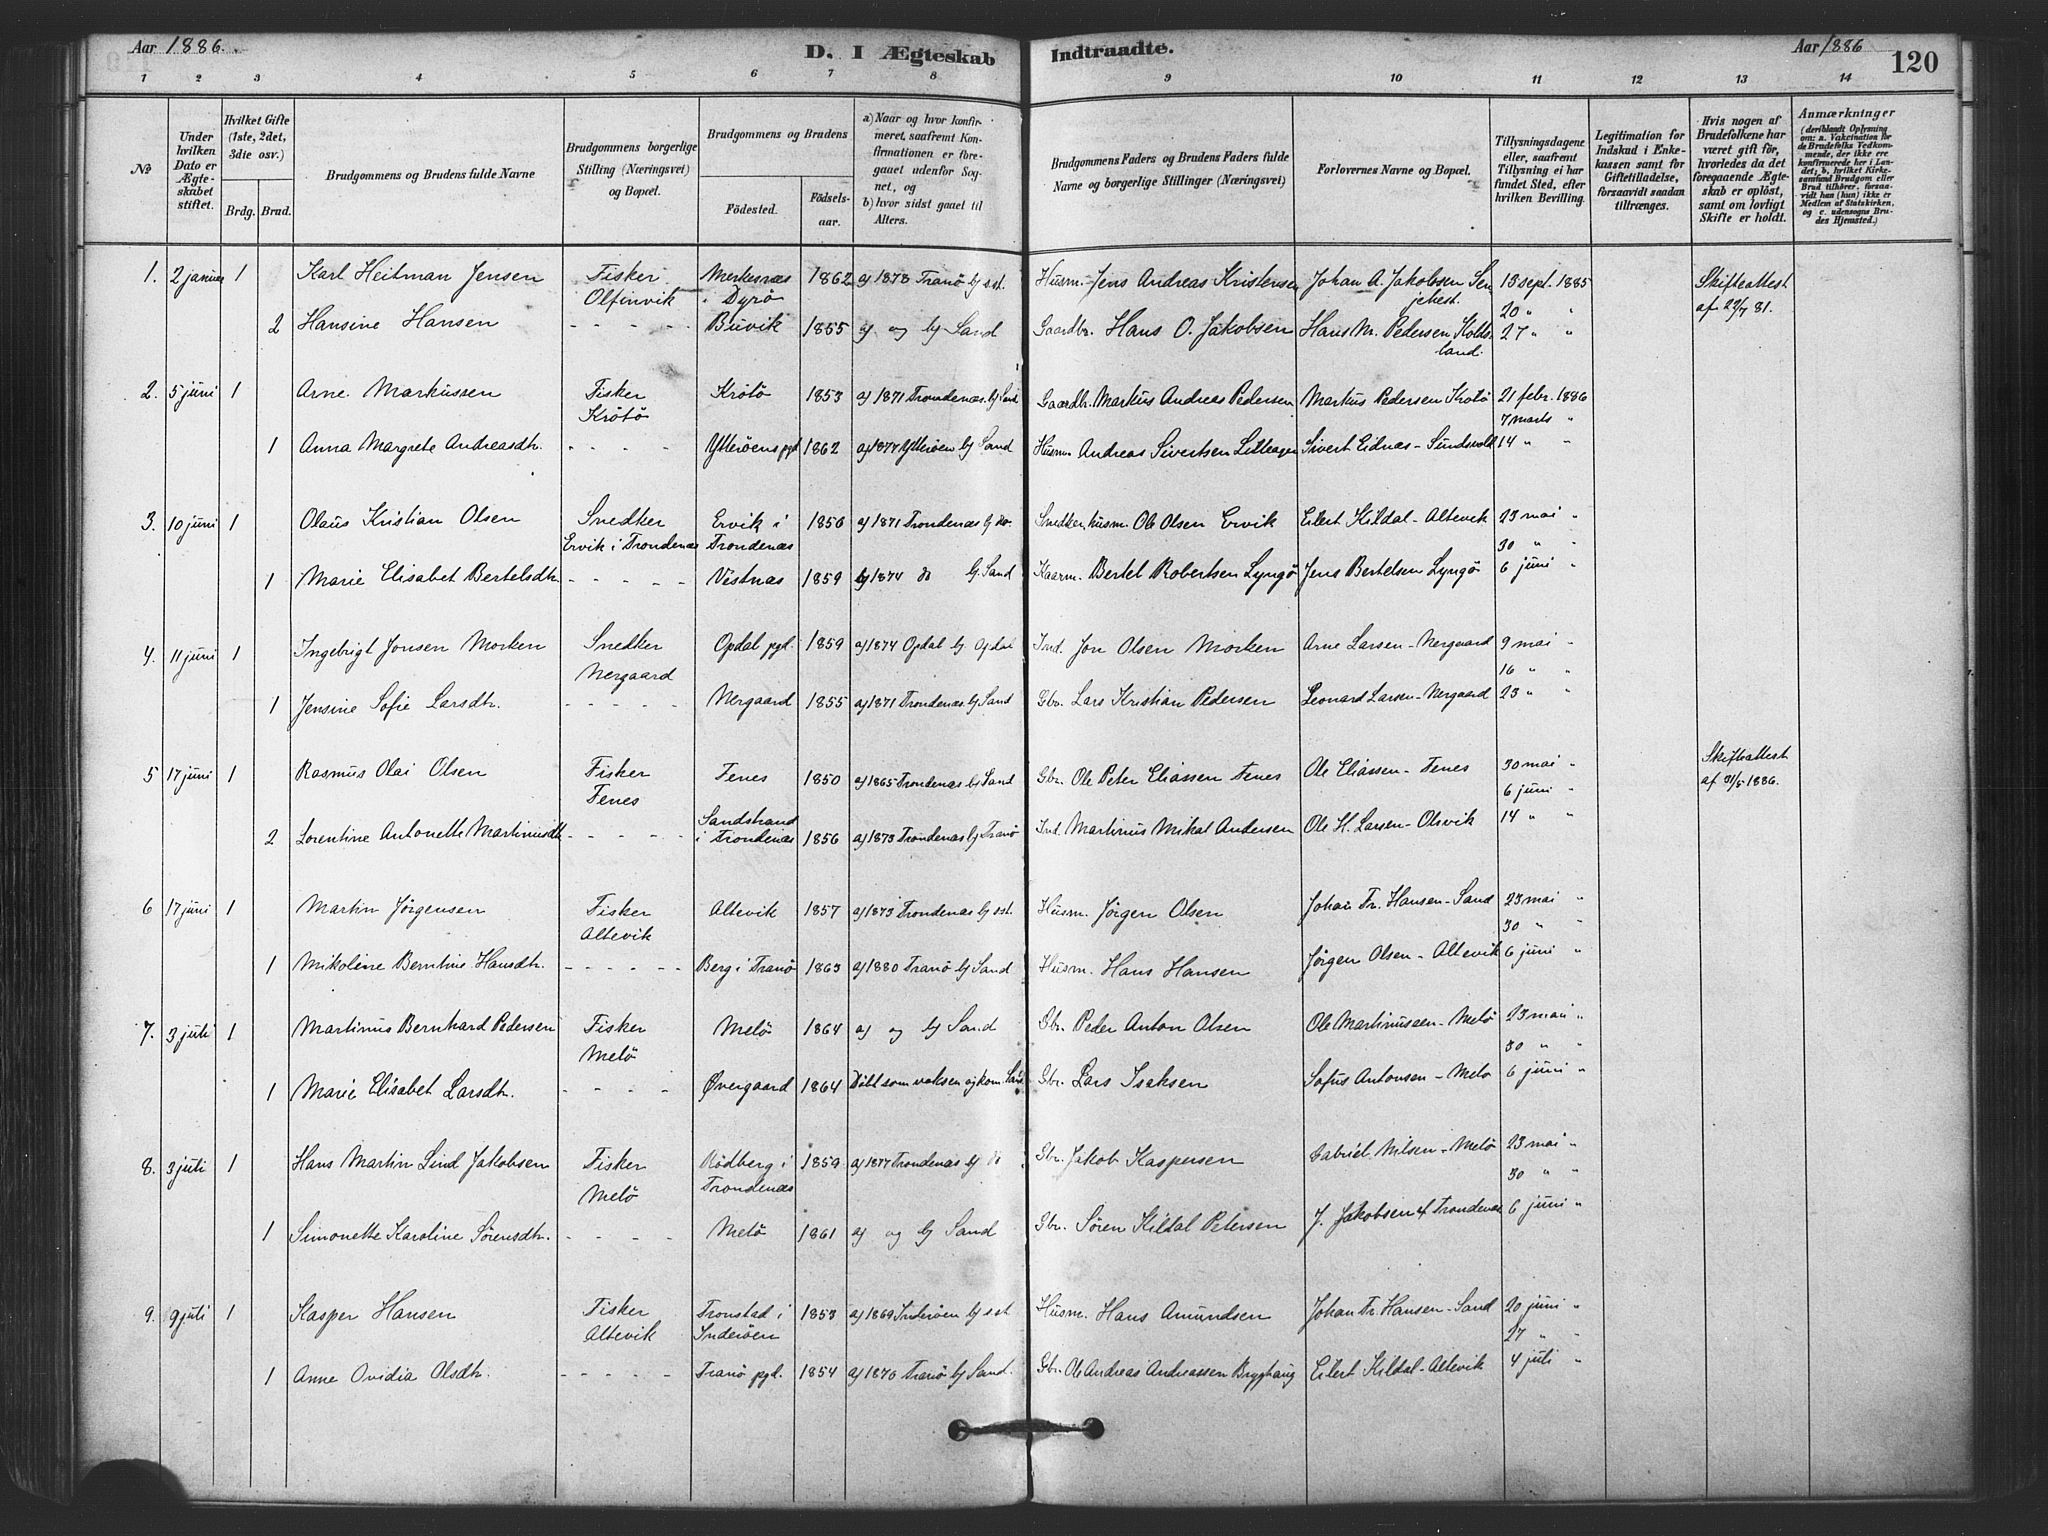 Aar 1886.
D. I Ægteskab Indtraadte.
Aar 1886
120
1 2 3 4 5 6 7 8 9 10 11 12 13 14
No
Under hvilken Dato er Ægteskabet stiftet.
Hvilket Gifte (1ste, 2det, 3die osv.)
Brdg. Brud.
Brudgommens og Brudens fulde Navne
Brudgommens borgerlige Stilling (Næringsvei) og Bopæl.
Brudgommens og Brudens
Fødested.
Fødselsaar.
a) Naar og hvor konfirmeret, saafremt Konfirmationen er foregaaet udenfor Sognet, og
b) hvor sidst gaaet til Alters.
Brudgommens Faders og Brudens Faders fulde Navne og borgerlige Stillinger (Næringsvei)
Forlovernes Navne og Bopæl.
Tillysningsdagene eller, saafremt Tillysning ei har fundet Sted, efter hvilken Bevilling.
Legitimation for Indskud i Enkekassen samt for Giftetilladelse, forsaavidt saadan tiltrænges.
Hvis nogen af Brudefolkene har været gift før, hvorledes da det foregaaende Ægteskab er opløst, samt om lovligt Skifte er holdt.
Anmærkninger
(deriblandt Oplysning om: a. Vakcination for de Brudefolks Vedkommende, der ikke ere konfirmerede her i Landet; b. hvilket Kirkesamfund Brudgom eller Brud tilhører, forsaavidt han (hun) ikke er Medlem af Statskirken, og c. udensogns Brudes Hjemsted.)
1. 2 januar 1 Karl Heitman Jensen Fisker Merkesnæs 1862 a) 1878 Tranö b) sst. Husm. Jens Andreas Kristensen Johan A. Jakobsen Sen 13 sept. 1885 Skifteattest
Olfenvik i Dyrö jehest 20 " " af 29/7 81.
2 Hansine Hansen - - - - - Buvik 1855 a) og b) Sand Gaardbr. Hans O. Jakobsen Hans M. Pedersen Kolds- 27 " "
land.
2. 5 juni 1 Arne Markussen Fisker Krötö 1853 a) 1871 Trondenæs. b) Sand Gaardbr. Markus Andreas Pedersen Markus Pedersen Krötö 21 febr. 1886
Krötö 7 marts "
1 Anna Margrete Andreasdtr. - - - - Ytterøens pgd 1862 a) 1877 Ytterøen b) Sand Husm. Andreas Sivertsen Sivert Eidnæs - Sundsvold 14 " "
3. 10 juni 1 Olaus Kristian Olsen Snedker Ervik i 1850 a) 1871 Trondenæs b) do. Snedker, husm. Ole Olsen Ervik Eilert Kildal - Altevik 23 mai "
Ervik i Trondenæs Trondenæs 30 " "
1 Marie Elisabet Bertelsdtr - - - - - Vestnæs 1859 a) 1874 do b) Sand Kaarm. Bertel Robertsen Lyngö Jens Bertelsen Lyngö 6 juni "
4. 11 juni 1 Ingebrigt Jonsen Morken Snedker Opdal pgd. 1859 a) 1874 Opdal b) Opdal Ind. Jon Olsen Morken Arne Larsen - Nergaard 9 mai "
Nergaard 16 " "
1 Jensine Sofie Larsdtr. - - - - - Nergaard 1855 a) 1871 Trondenæs. b) Sand Gbr. Lars Kristian Pedersen Leonard Larsen - Nergaard 23 " "
5 17 juni 1 Rasmus Olai Olsen Fisker Fenes 1850 a) 1865 Trondenæs b) Sand Gbr. Ole Peter Eliassen Fenes Ole Eliassen - Fenes 30 mai " Skifteattest
Fenes 6 juni " af 31/5 1886.
Sandstrand
2 Lorentine Antonette Martinusdtr - - - - - i Trondenæs 1856 a) 1873 Trondenæs b) Tranö Ind. Martinus Mikal Andersen Ole H. Larsen - Olsvik 14 " "
6 17 juni 1 Martin Jörgensen Fisker Altevik 1857 a) 1873 Trondenæs b) sst. Husm. Jörgen Olsen Johan Fr. Hansen - Sand 23 mai "
Altevik 30 " "
1 Mikoline Berntine Hansdtr. - - - - - Berg i Tranö 1863 a) 1880 Tranö b) Sand Husm. Hans Hansen Jörgen Olsen - Altevik 6 juni "
7. 3 juli 1 Martinus Bernhard Pedersen Fisker Melö 1864 a) og b) Sand Gbr. Peder Anton Olsen Ole Martinussen - Melö 23 mai "
Melö 30 " "
1 Marie Elisabet Larsdtr. - - - - Øvergaard 1864 Döbt som voksen og kom. Sand Gbr. Lars Isaksen Sofus Antonsen - Melö 6 juni "
8. 3 juli 1 Hans Martin Lind Jakobsen Fisker Rödberg i 1859 a) 1877 Trondenæs b) do Gbr. Jakob Kaspersen Gabriel Nilsen - Melö 23 mai "
Melö Trondenæs 30 " "
1 Simonette Karoline Sörensdtr. - - - - Melö 1861 a) og b) Sand Gbr. Sören Kildal Petersen J. Jakobsen Trondenæs 6 juni "
9. 9 juli 1 Kasper Hansen Fisker Tronstad i 1853 a) 1869 Inderöen b) sst Husm. Hans Amundsen Johan Fr. Hansen - Sand 20 juni "
Altevik Inderöen 27 " "
1 Anne Ovidia Olsdtr. - - - - - Tranö pgd. 1854 a) 1870 Tranö b) Sand. Gbr. Ole Andreas Andreassen Bryghaug Eilert Kildal - Altevik 4 juli "